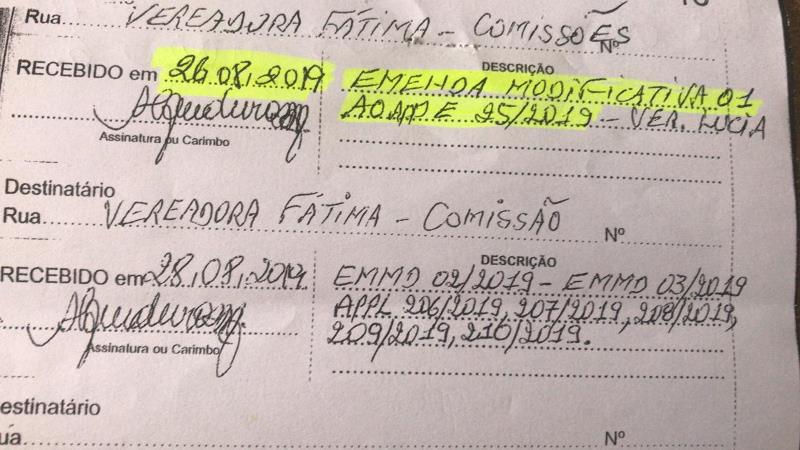 Rua VEREADORA FÁTIMA - COMISSÕES
Nº
RECEBIDO em 26.08.2019
DESCRIÇÃO
EMENDA MODIFICATIVA 01
AO APP E 25/2019 - VER. LUCIA
Assinatura ou Carimbo
Destinatário
Rua VEREADORA FÁTIMA - COMISSÃO
Nº
RECEBIDO em 28.08.2019
DESCRIÇÃO
EMMD 02/2019 - EMMD 03/2019
APPL 206/2019, 207/2019, 208/2019,
209/2019, 210/2019.
Assinatura ou Carimbo
estinatário
ua
Nº